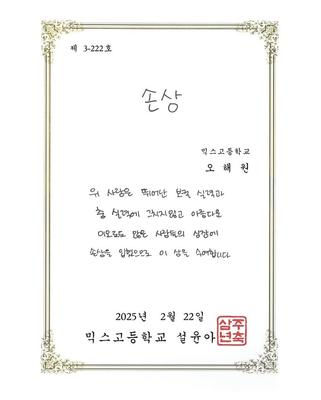 제 3-222호
손상
믹스고등학교
오 해 원
위 사람은 뛰어난 보컬 실력과
춤 실력에 그치지않고 아름다운
미모로도 많은 사람들의 심장에
손상을 입혔으므로 이 상을 수여합니다
2025년 2월 22일
믹스고등학교 설윤아
주축
삼년